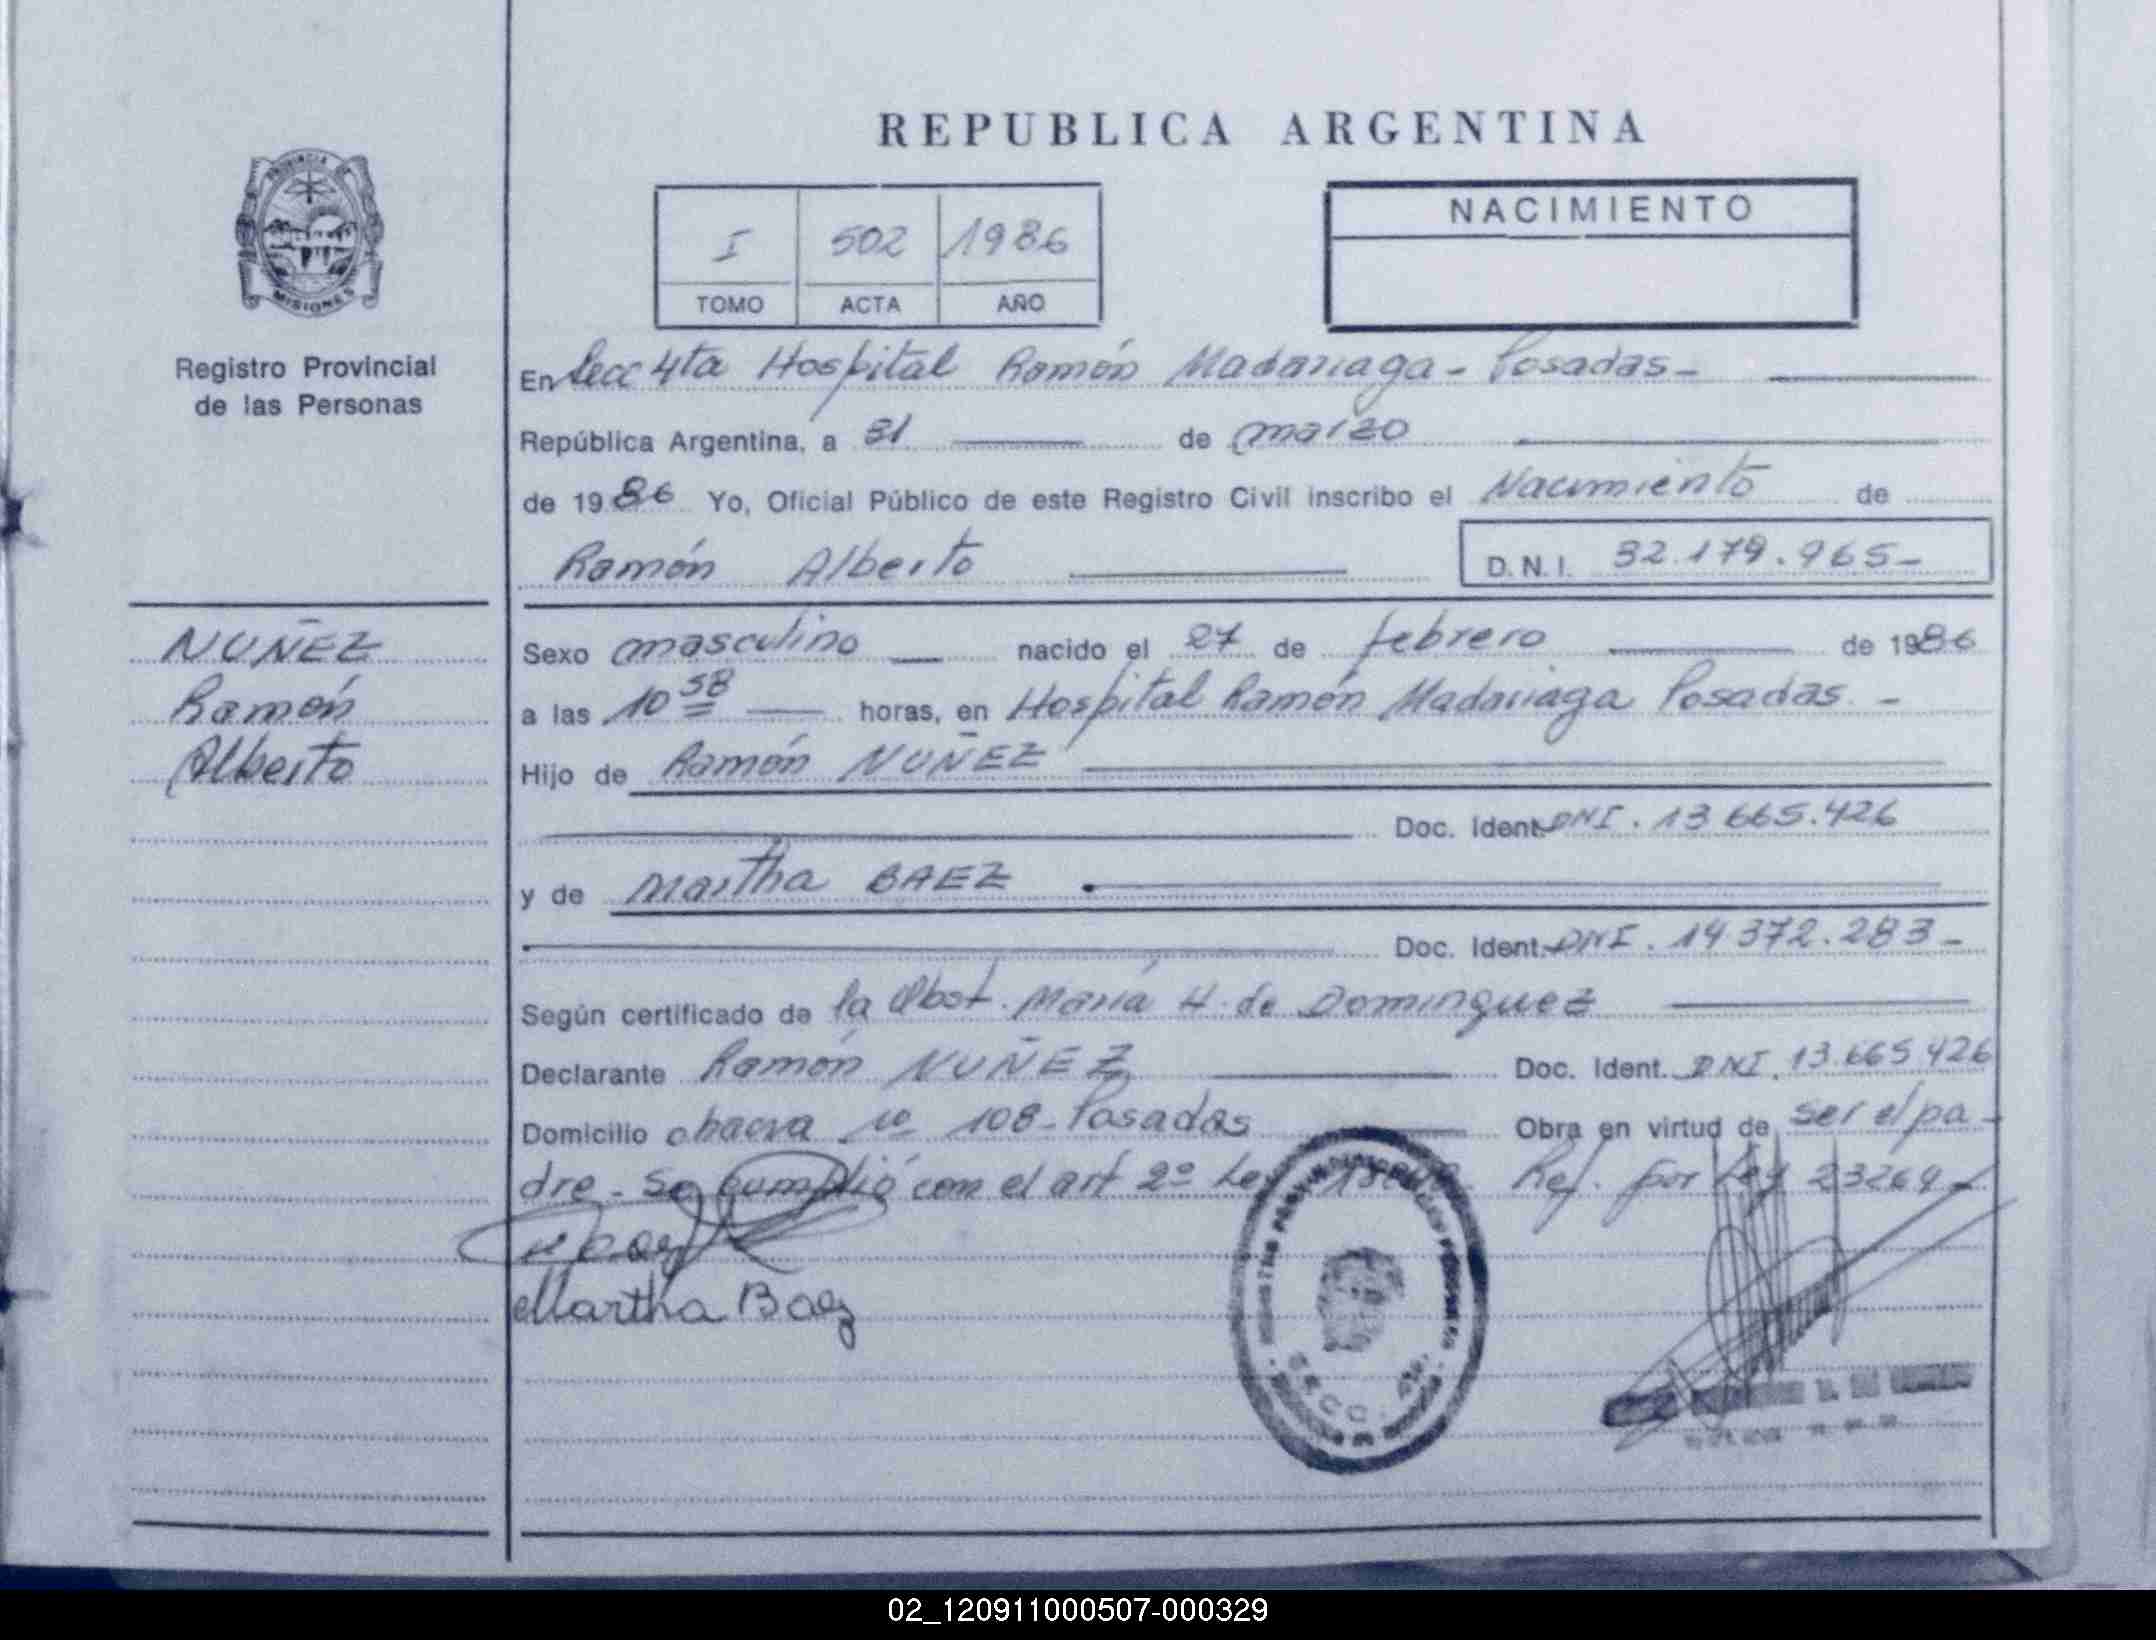 REPUBLICA ARGENTINA
PROVINCIA DE MISIONES
Registro Provincial
de las Personas
I 502 1986
TOMO ACTA AÑO
NACIMIENTO
En Secc 4ta Hospital Ramón Madariaga - Posadas -
República Argentina, a 31 de marzo
de 1986 Yo, Oficial Público de este Registro Civil inscribo el Nacimiento de
Ramón Alberto D.N.I. 32.179.965-
NUÑEZ
Ramón
Alberto
Sexo masculino nacido el 27 de febrero de 1986
a las 10 58 horas, en Hospital Ramón Madariaga Posadas. -
Hijo de Ramón NUÑEZ
Doc. Ident. DNI. 13.665.426
y de Martha BAEZ
Doc. Ident. DNI. 14.372.283-
Según certificado de la Obst. María H. de Dominguez
Declarante Ramón NUÑEZ Doc. Ident. DNI. 13.665.426
Domicilio nº 108 - Posadas Obra en virtud de ser el pa-
dre - Se cumplió con el art 2º Ley Ref. por Ley 23264
Martha Baez
SECC. 4ta.
02_120911000507-000329